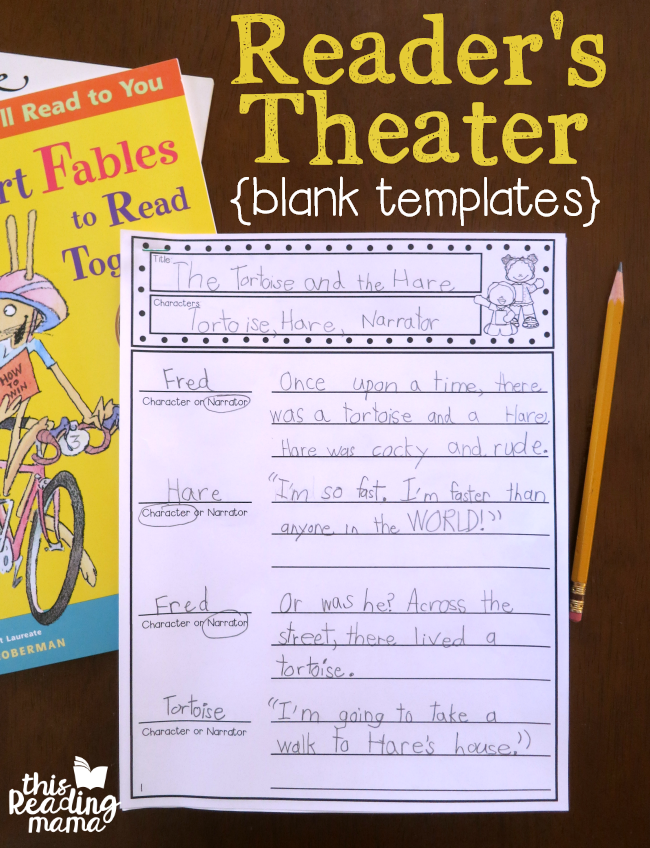 Reader's
Theater
{blank templates}
ll Read to You
rt Fables
to Read
Tog
HOW
TO
WIN
3
t Laureate
OBERMAN
Title
The Tortoise and the Hare
Characters
Tortoise, Hare, Narrator
Fred
Character or Narrator
Once upon a time, there
was a tortoise and a Hare.
Hare was cocky and rude.
Hare
Character or Narrator
"I'm so fast. I'm faster than
anyone in the WORLD!"
Fred
Character or Narrator
Or was he? Across the
street, there lived a
tortoise.
Tortoise
Character or Narrator
"I'm going to take a
walk to Hare's house."
1
this
Reading
mama